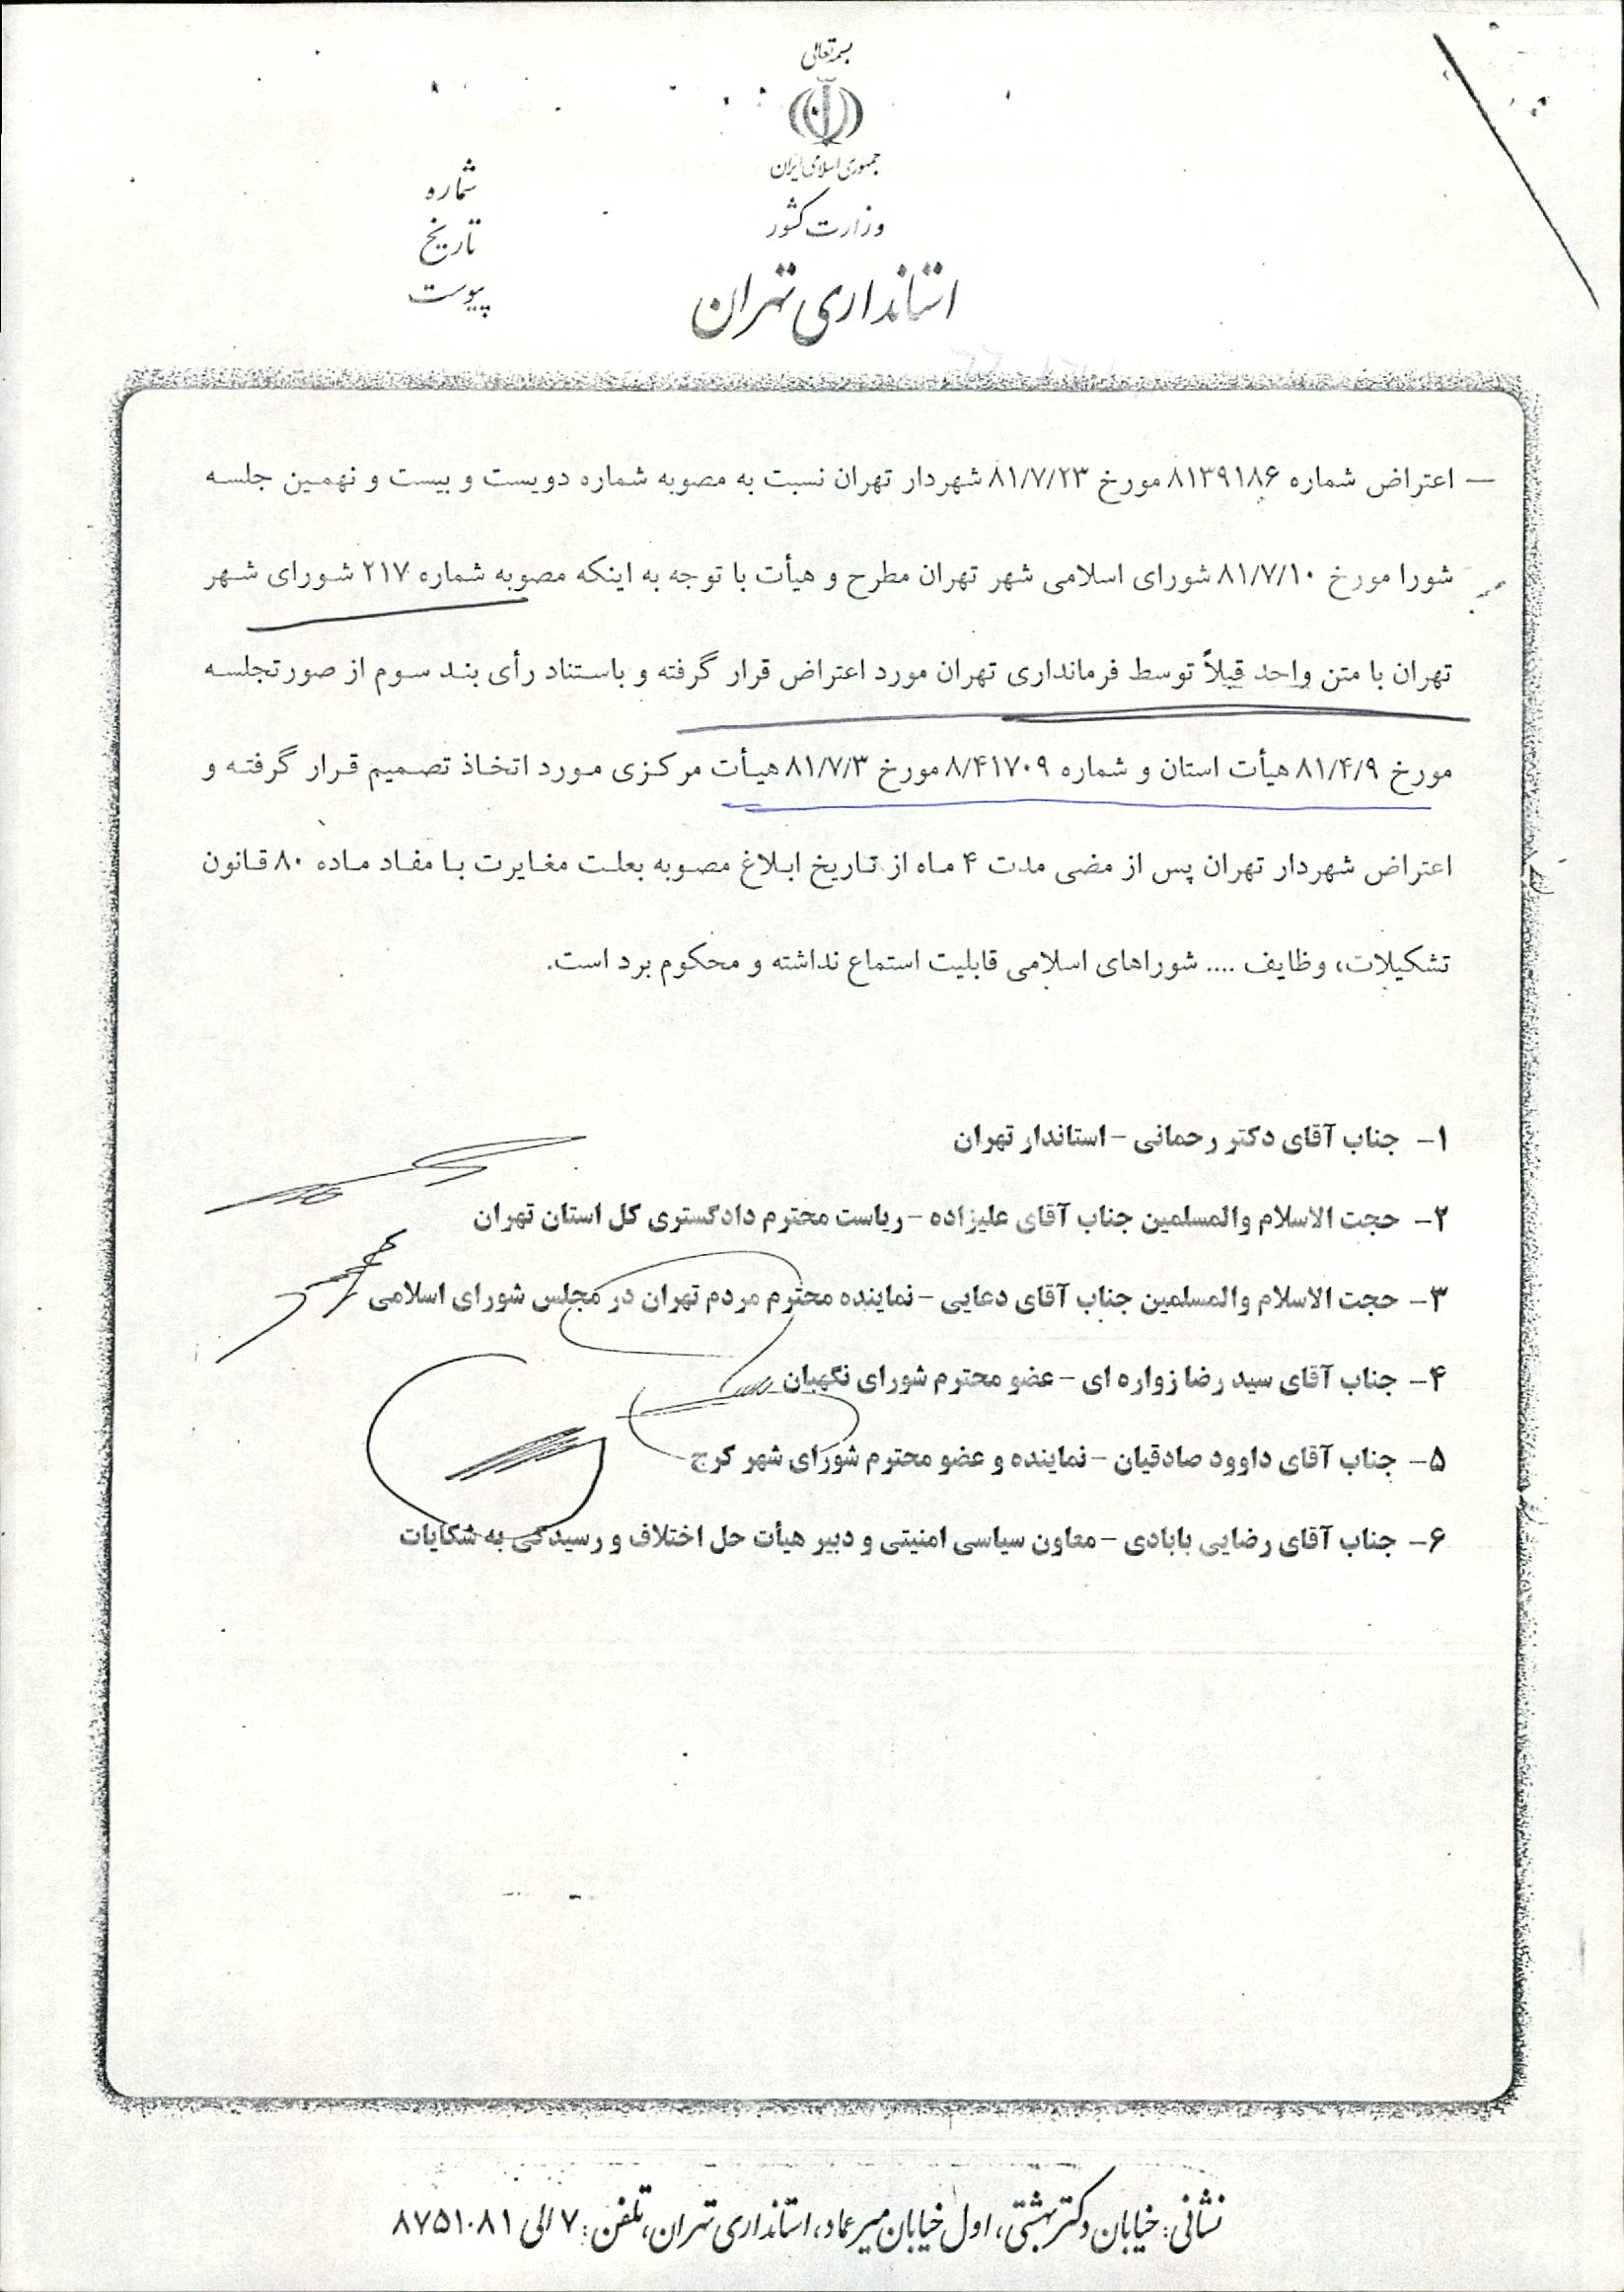 بسمه تعالی
جمهوری اسلامی ایران
وزارت کشور
استانداری تهران
شماره
تاریخ
پیوست
– اعتراض شماره ۸۱۳۹۱۸۶ مورخ ۸۱/۷/۲۳ شهردار تهران نسبت به مصوبه شماره دویست و بیست و نهمین جلسه
شورا مورخ ۸۱/۷/۱۰ شورای اسلامی شهر تهران مطرح و هیأت با توجه به اینکه مصوبه شماره ۲۱۷ شورای شهر
تهران با متن واحد قبلاً توسط فرمانداری تهران مورد اعتراض قرار گرفته و باستناد رأی بند سوم از صورتجلسه
مورخ ۸۱/۴/۹ هیأت استان و شماره ۸/۴۱۷۰۹ مورخ ۸۱/۷/۳ هیأت مرکزی مورد اتخاذ تصمیم قرار گرفته و
اعتراض شهردار تهران پس از مضی مدت ۴ ماه از تاریخ ابلاغ مصوبه بعلت مغایرت با مفاد ماده ۸۰ قانون
تشکیلات، وظایف .... شوراهای اسلامی قابلیت استماع نداشته و محکوم برد است.
۱- جناب آقای دکتر رحمانی – استاندار تهران
۲- حجت الاسلام والمسلمین جناب آقای علیزاده – ریاست محترم دادگستری کل استان تهران
۳- حجت الاسلام والمسلمین جناب آقای دعایی – نماینده محترم مردم تهران در مجلس شورای اسلامی
۴- جناب آقای سید رضا زواره ای – عضو محترم شورای نگهبان
۵- جناب آقای داوود صادقیان – نماینده و عضو محترم شورای شهر کرج
۶- جناب آقای رضایی بابادی – معاون سیاسی امنیتی و دبیر هیأت حل اختلاف و رسیدگی به شکایات
نشانی: خیابان دکتر بهشتی، اول خیابان میرعماد، استانداری تهران، تلفن: ۷ الی ۸۷۵۱۰۸۱